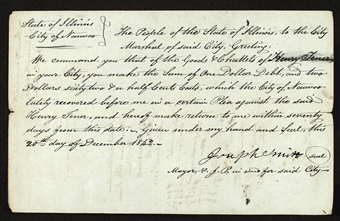 State of Illinois
City of Nauvoo
The People of the State of Illinois, to the City
Marshal of said City, Greeting:
We command you that of the Goods & Chattels of Henry Tener
in your City, you make the Sum of One Dollar Debt, and two
Dollars sixty two & a half Cents Costs, which the City of Nauvoo
lately recovered before me in a certain Plea against the said
Henry Tener, and hereof make return to me within seventy
days from this date. Given under my hand and Seal, this
20th day of December 1842.
Joseph Smith seal
Mayor & J.P. in and for said City